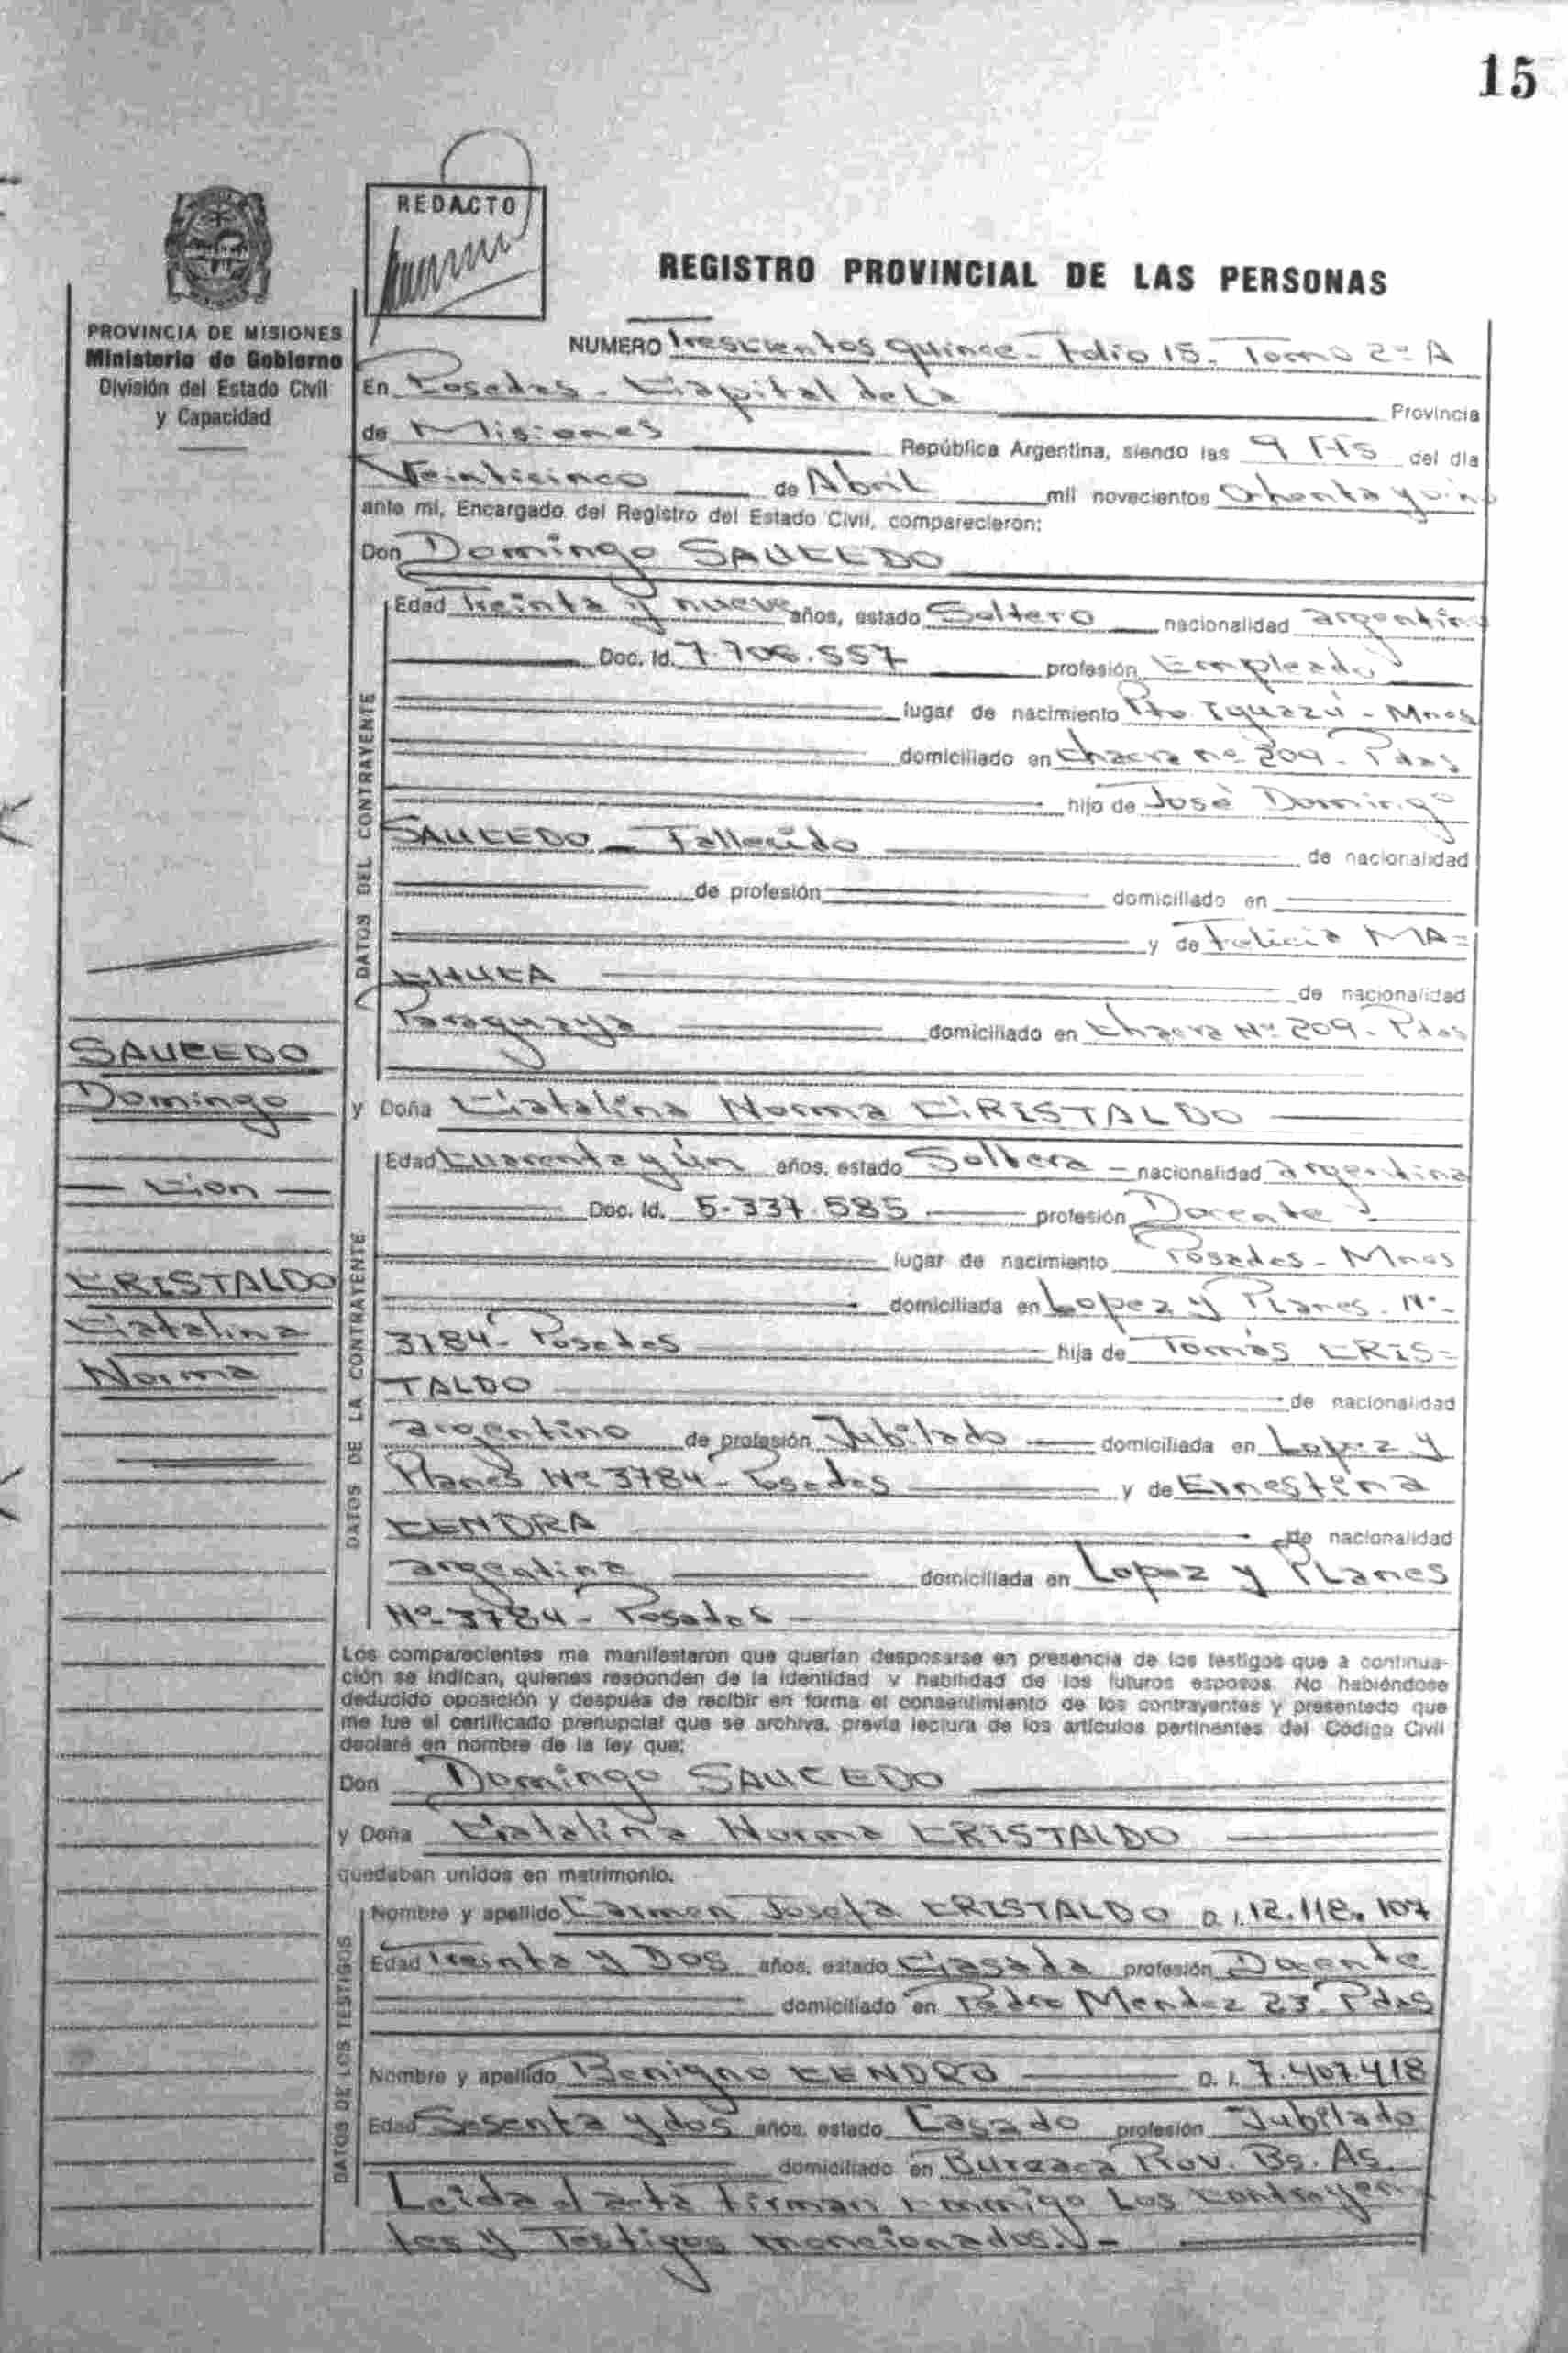 15
REDACTO
REGISTRO PROVINCIAL DE LAS PERSONAS
PROVINCIA DE MISIONES
Ministerio de Gobierno
División del Estado Civil
y Capacidad
NUMERO Trescientos quince - Folio 15. Tomo 2º A
En Posadas - Capital de la Provincia
de Misiones República Argentina, siendo las 9 Hs del día
Veinticinco de Abril mil novecientos Ochenta y
ante mí, Encargado del Registro del Estado Civil, comparecieron:
Don Domingo SAUCEDO
DATOS DEL CONTRAYENTE
Edad Treinta y nueve años, estado Soltero nacionalidad argentino
Doc. Id. 7.706.557 profesión Empleado
lugar de nacimiento Pto Iguazú - Mnes
domiciliado en chacra nº 209 - Pdas
hijo de José Domingo
SAUCEDO - Fallecido de nacionalidad
de profesión domiciliado en
y de Felicia MA=
CHUCA de nacionalidad
Paraguaya domiciliado en Chacra Nº 209 - Pdas
SAUCEDO
Domingo
- Con -
CRISTALDO
Catalina
Norma
y Doña Catalina Norma CRISTALDO
DATOS DE LA CONTRAYENTE
Edad Cuarenta y ún años, estado Soltera - nacionalidad argentina
Doc. Id. 5.337.585 profesión Docente
lugar de nacimiento Posadas - Mnes
domiciliada en Lopez y Planes - Nº
3784 - Posadas hija de Tomás CRIS=
TALDO de nacionalidad
argentino de profesión Jubilado domiciliada en Lopez y
Planes Nº 3784 - Posadas y de Ernestina
CENDRA de nacionalidad
argentina domiciliada en Lopez y Planes
Nº 3784 - Posadas
Los comparecientes me manifestaron que querían desposarse en presencia de los testigos que a continua-
ción se indican, quienes responden de la identidad y habilidad de los futuros esposos. No habiéndose
deducido oposición y después de recibir en forma el consentimiento de los contrayentes y presentado que
me fue el certificado prenupcial que se archiva, previa lectura de los artículos pertinentes del Código Civil
declaré en nombre de la ley que:
Don Domingo SAUCEDO
y Doña Catalina Norma CRISTALDO
quedaban unidos en matrimonio.
DATOS DE LOS TESTIGOS
Nombre y apellido Carmen Josefa CRISTALDO D. I. 12.118.107
Edad Treinta y Dos años, estado Casada profesión Docente
domiciliado en Pedro Mendez 23 Pdas
Nombre y apellido Benigno CENDRA D. I. 7.407.418
Edad Sesenta y dos años, estado Casado profesión Jubilado
domiciliado en Burzaca Prov. Bs. As.
Leida el acta firman conmigo Los contrayen
tes y Testigos mencionados.-